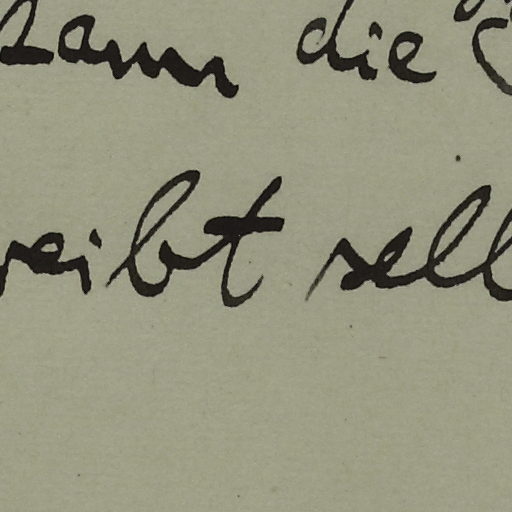 kann die
reibt sell